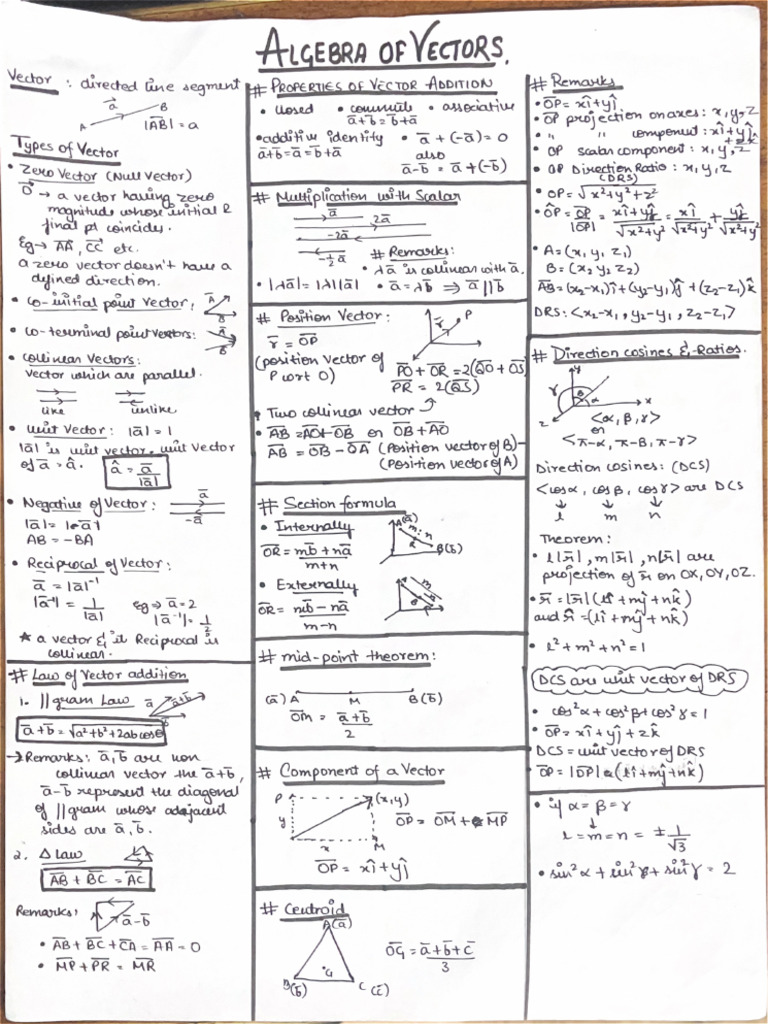 ALGEBRA OF VECTORS.
Vector : directed line segment
a̅ B
A |A̅B̅| = a
Types of Vector
• Zero Vector (Null Vector)
O⃗ → a vector having zero
magnitude whose initial &
final pt coincides.
Eg → A̅A̅, C̅C̅ etc.
a zero vector doesn't have a
defined direction.
• co-initial point vector:
A
B
• co-terminal point vectors:
A
B
• collinear vectors:
vector which are parallel.
like unlike
• unit vector: |a̅| = 1
|a̅| is unit vector, unit vector
of a̅ = â. â = a̅/|a̅|
• Negative of Vector: a̅
|a̅| = |-a̅| -a̅
AB = -BA
• Reciprocal of Vector:
a̅ = |a̅|⁻¹
|a̅⁻¹| = 1/|a̅| eg → a̅ = 2
|a̅⁻¹| = 1/2
★ a vector & it Reciprocal is
collinear.
# Law of Vector addition
1. ||gram Law a̅ a̅+b̅
b̅
a̅+b̅ = √a²+b²+2ab cosθ
→ Remarks: a̅, b̅ are non
collinear vector the a̅+b̅,
a̅-b̅ represent the diagonal
of ||gram whose adjacent
sides are a̅, b̅.
2. Δ Law
A̅B̅ + B̅C̅ = A̅C̅
Remarks: a̅-b̅
• A̅B̅ + B̅C̅ + C̅A̅ = A̅A̅ = 0
• M̅P̅ + P̅R̅ = M̅R̅
# PROPERTIES OF VECTOR ADDITION
• closed • commute • associative
a̅+b̅ = b̅+a̅
• additive identity • a̅ + (-a̅) = 0
a̅+b̅ = a̅ = b̅+a̅ also
a̅-b̅ = a̅ + (-b̅)
# Multiplication with Scalar
a̅ 2a̅
-2a̅
-½a̅ # Remarks:
• λa̅ is collinear with a̅.
• |λa̅| = |λ||a̅| • a̅ = λb̅ ⇒ a̅ || b̅
# Position Vector:
r̅ P
r̅ = O̅P̅
(position vector of
P wrt O)
P̅O̅ + O̅R̅ = 2(Q̅O̅ + O̅S̅)
P̅R̅ = 2(Q̅S̅)
• Two collinear vector
• A̅B̅ = A̅O̅ + O̅B̅ or O̅B̅ + A̅O̅
A̅B̅ = O̅B̅ - O̅A̅ (Position vector of B) -
(Position vector of A)
# Section formula
• Internally A(a̅) m:n
R B(b̅)
O̅R̅ = mb̅ + na̅/m+n
• Externally
O̅R̅ = mb̅ - na̅/m-n
# mid-point theorem:
(a̅) A M B(b̅)
O̅M̅ = a̅+b̅/2
# Component of a Vector
P (x,y)
y O̅P̅ = O̅M̅ + M̅P̅
x M
O̅P̅ = xî + yĵ
# Centroid
A(a̅)
O̅G̅ = a̅+b̅+c̅/3
G
B(b̅) C (c̅)
# Remarks
• O̅P̅ = xî + yĵ
• OP projection on axes: x, y, z
• " " component: xî + yĵ + zk̂
• OP scalar component: x, y, z
• OP Direction Ratio: x, y, z
(DRS)
• OP = √x²+y²+z²
• ÔP = O̅P̅/|OP| = xî+yĵ/√x²+y² = xî/√x²+y² + yĵ/√x²+y²
• A = (x₁ y₁ z₁)
B = (x₂ y₂ z₂)
A̅B̅ = (x₂-x₁)î + (y₂-y₁)ĵ + (z₂-z₁)k̂
DRS: <x₂-x₁, y₂-y₁, z₂-z₁>
# Direction cosines & Ratios.
y
γ β α
x
z
<α, β, γ>
or
<π-α, π-β, π-γ>
Direction cosines: (DCS)
<cosα, cosβ, cosγ> are DCS
↓ ↓ ↓
l m n
Theorem:
• l|r̅|, m|r̅|, n|r̅| are
projection of r̅ on OX, OY, OZ.
• r̅ = |r̅| (lî + mĵ + nk̂)
and r̂ = (lî + mĵ + nk̂)
• l² + m² + n² = 1
DCS are unit vector of DRS
• cos²α + cos²β + cos²γ = 1
• O̅P̅ = xî + yĵ + zk̂
DCS = unit vector of DRS
O̅P̅ = |OP| (lî + mĵ + nk̂)
• if α = β = γ
↓
l = m = n = ± 1/√3
• sin²α + sin²β + sin²γ = 2